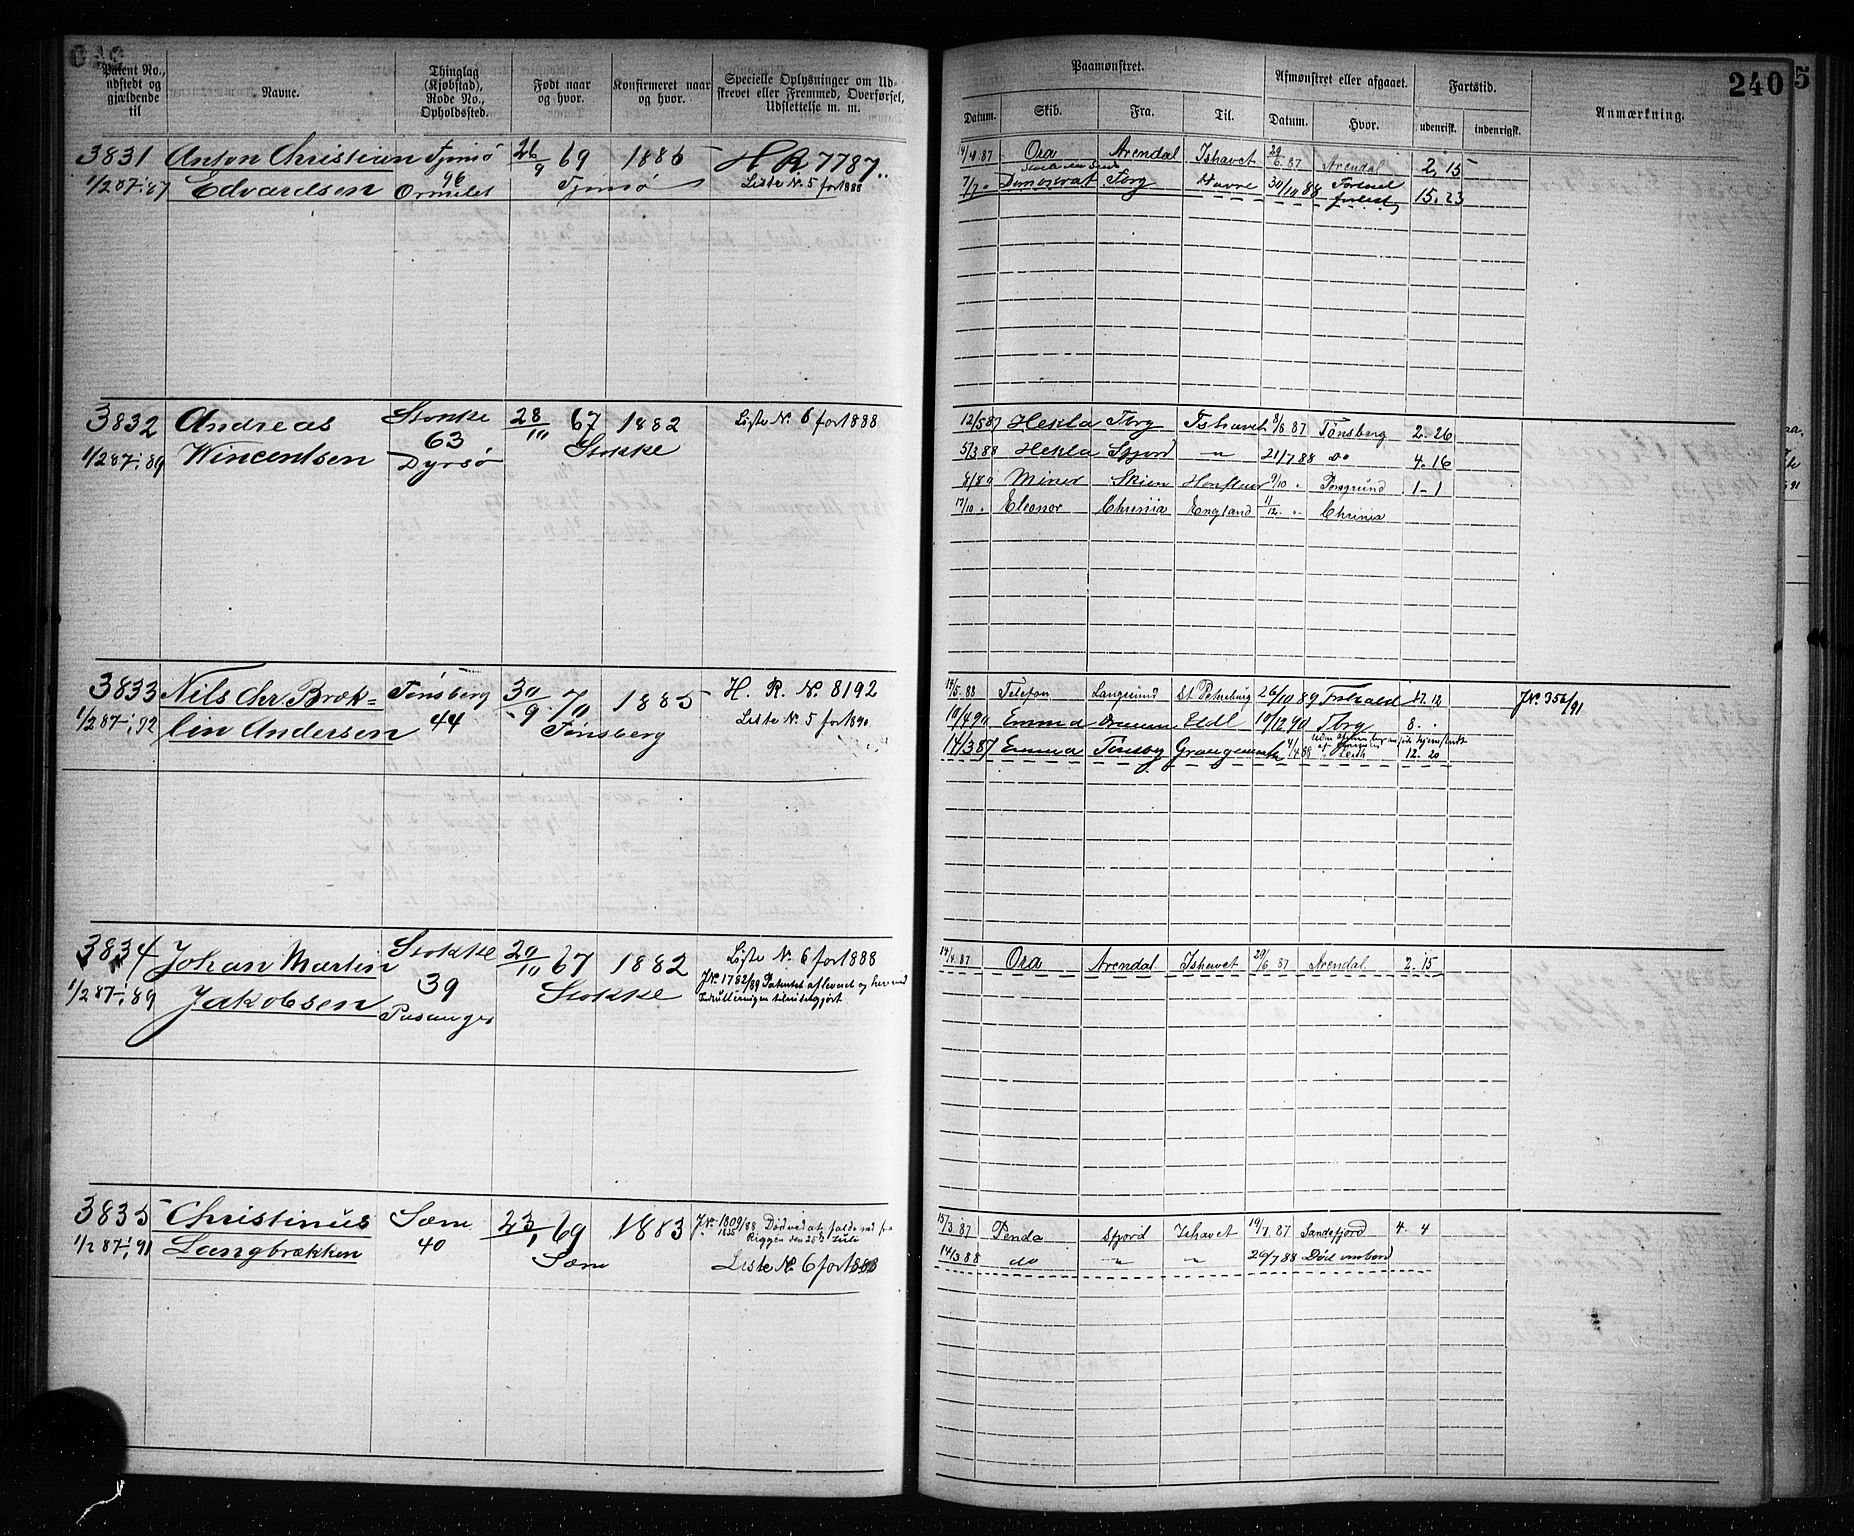 Patent No., udstedt og gjældende til
Navne.
Thinglag (Kjøbstad), Rode No., Opholdssted.
Født naar og hvor.
Konfirmeret naar og hvor.
Specielle Oplysninger om Udskrevet eller Fremmed, Overførsel, Udslettelse m. m.
Paamønstret.
Datum. Skib. Fra. Til.
Afmønstret eller afgaaet.
Datum. Hvor.
Fartstid.
udenrigsk. indenrigsk.
Anmærkning.
240
5
3831 Anton Christian Tjømø 26/9 69 1885 H R 7787
1/2 87-1/87 Edvardsen 96 Ormelet Tjømø Liste N. 5 for 1888
14/4 87 Ora Arendal Ishavet 29/6 87 Arendal 2. 15
7/7 " Demokrat Tbrg Havre 30/10 88 Forlist 15. 23
3832 Andreas Stokke 28/10 67 1882 Liste N. 6 for 1888
1/2 87-1/89 Wincentsen 63 Dyrsø Stokke
12/5 87 Hekla Tbrg Ishavet 8/8 87 Tønsberg 2. 26
5/3 88 Hekla Sfjord " 21/7 88 do 4. 16
8/8 Miner Skien Honfleur 9/10 " Porsgrund 1-1
17/10 " Eleonor Chrenia England 11/12 " Chrinia
3833 Nils Chr. Brøk- Tønsberg 30/9 70 1885 H. R. N. 8192
1/2 87-1/92 lin Andersen 44 Tønsberg Liste N. 5 for 1890
14/5 88 Telefon Langesund St Petersburg 26/10 89 11. 12 J.N. 356/91
10/4 90 Emma Dramm 10/12 90 Tbrg 8. -
14/3 87 Emma Tønsbg Grangemouth 4/4 88 Leith 12. 20
3834 Johan Martin Stokke 20/10 67 1882 Liste N. 6 for 1888
1/2 87-1/89 Jakobsen 39 Stokke J.N. 1762/89 Patentet afleveret og herved
Indrulleringen tilintetgjort
14/4 87 Ora Arendal Ishavet 29/6 87 Arendal 2. 15
3835 Christinus Sæm 23/1 69 1883 J.N. 1809/88 Død ved at falde ned fra
1/2 87-1/91 Langbrækken 40 Sæm Riggen den 25d Juli
Liste N. 6 for 1888
15/3 87 Penda Sfjord Ishavet 19/7 87 Sandefjord 4. 4
14/3 88 do " " 20/7 88 Død ombord